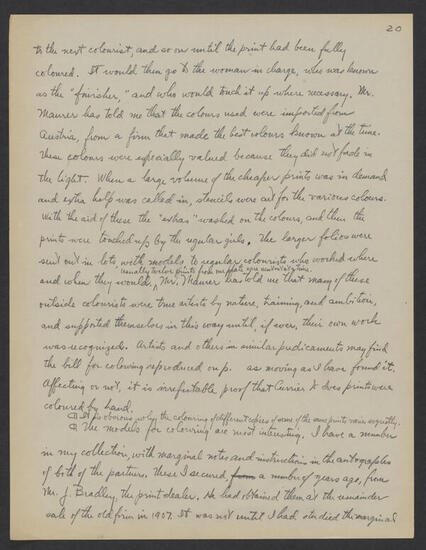 20
to the next colourist, and so on until the print had been fully
coloured. It would then go to the woman in charge, who was known
as the "finisher," and who would touch it up where necessary. Mr.
Maurer has told me that the colours used were imported from
Austria, from a firm that made the best colours known at the time.
These colours were especially valued because they did not fade in
the light. When a large volume of the cheaper prints was in demand
and extra help was called in, stencils were cut for the various colours.
With the aid of these the "extras" washed on the colours, and then the
prints were touched up by the regular girls. The larger folios were
sent out in lots with models to regular colourists who worked where
usually twelve prints from one plate
and when they would, Mr. Maurer has told me that many of these
outside colourists were true artists by nature, training, and ambition,
and supported themselves in this way until, if ever, their own work
was recognized. Artists and others in similar predicaments may find
the bill for colouring reproduced on p. as moving as I have found it.
Affecting or not, it is irrefutable proof that Currier & Ives prints were
coloured by hand.
It is obvious, why the colouring of different copies of some of the same prints varies so greatly.
The models for colouring are most interesting. I have a number
in my collection, with marginal notes and instructions in the autographs
of both of the partners. These I secured, from a number of years ago, from
Mr. J. Bradley, the print dealer. He had obtained them at the remainder
sale of the old firm in 1907. It was not until I had studied the marginal